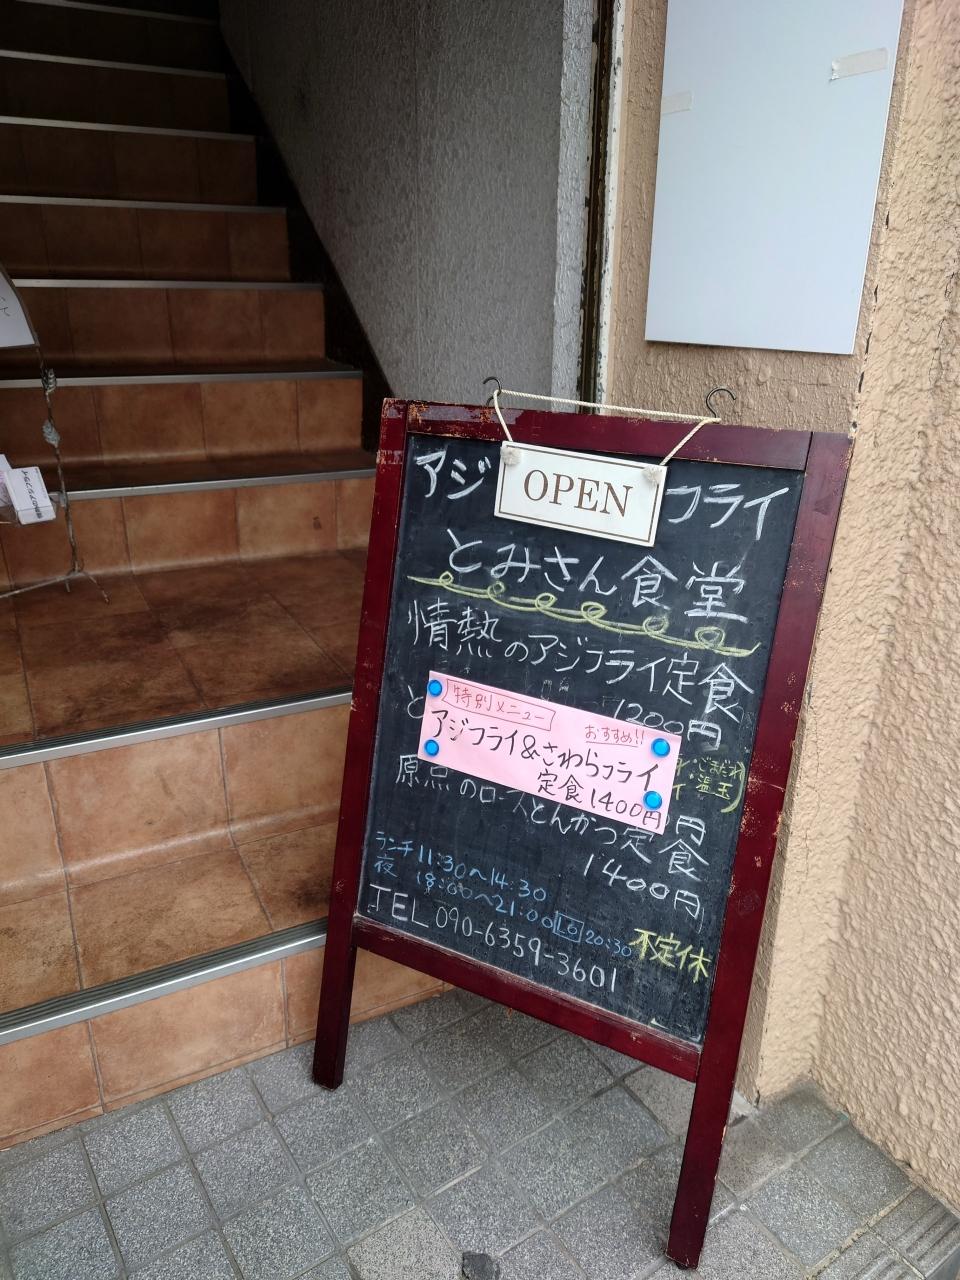 アジ OPEN フライ
とみさん食堂
情熱のアジフライ定食
1200円
と
特別メニュー おすすめ!!
アジフライ&さわらフライ
定食1400円
ごまだれ
温玉
円
原点のロースとんかつ定食
1400円
ランチ11:30〜14:30
夜 18:00〜21:00 LO 20:30
不定休
TEL 090-6359-3601